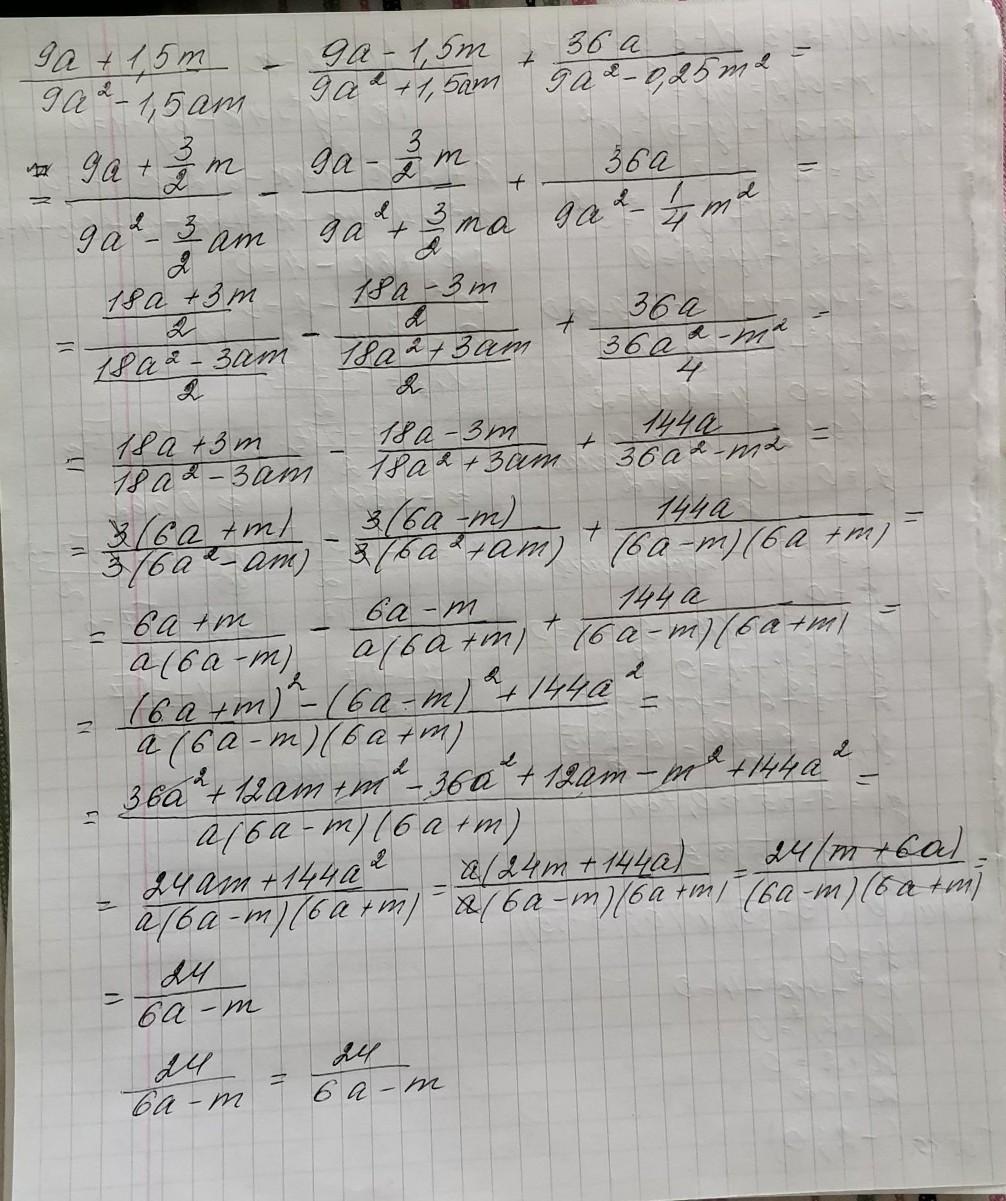 (9a + 1,5m)/(9a² - 1,5am) - (9a - 1,5m)/(9a² + 1,5am) + 36a/(9a² - 0,25m²) =
= (9a + 3/2 m)/(9a² - 3/2 am) - (9a - 3/2 m)/(9a² + 3/2 ma) + 36a/(9a² - 1/4 m²) =
= ((18a + 3m)/2)/((18a² - 3am)/2) - ((18a - 3m)/2)/((18a² + 3am)/2) + 36a/((36a² - m²)/4) =
= (18a + 3m)/(18a² - 3am) - (18a - 3m)/(18a² + 3am) + 144a/(36a² - m²) =
= 3(6a + m)/3(6a² - am) - 3(6a - m)/3(6a² + am) + 144a/(6a - m)(6a + m) =
= (6a + m)/a(6a - m) - (6a - m)/a(6a + m) + 144a/(6a - m)(6a + m) =
= ((6a + m)² - (6a - m)² + 144a²)/a(6a - m)(6a + m) =
= (36a² + 12am + m² - 36a² + 12am - m² + 144a²)/a(6a - m)(6a + m) =
= (24am + 144a²)/a(6a - m)(6a + m) = a(24m + 144a)/a(6a - m)(6a + m) = 24(m + 6a)/(6a - m)(6a + m) =
= 24/(6a - m)
24/(6a - m) = 24/(6a - m)